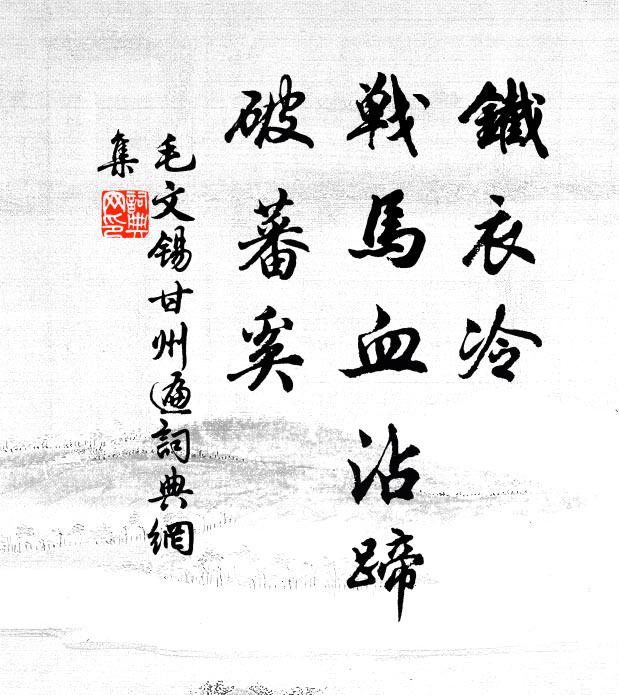 鐵衣冷
戰馬血沾蹄
破蕃奚
毛文錫甘州遍詞典網
集
詞典網印